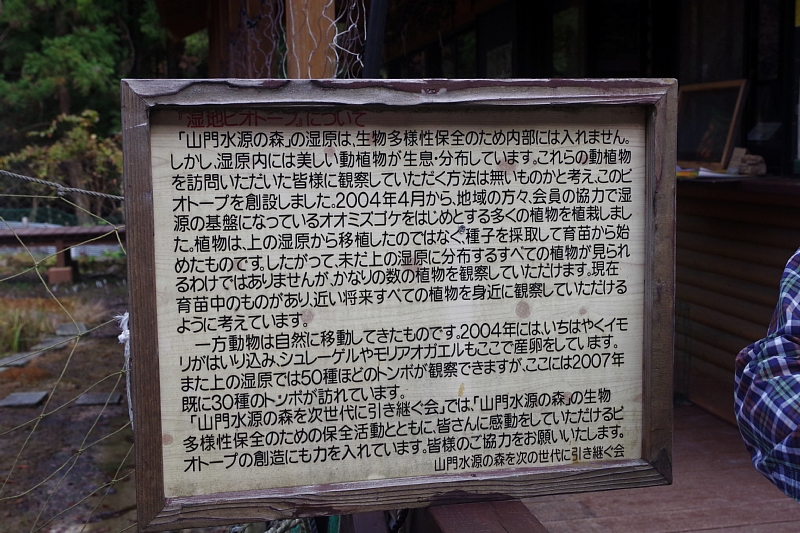 『湿地ビオトープ』について
「山門水源の森」の湿原は、生物多様性保全のため内部には入れません。
しかし、湿原内には美しい動植物が生息・分布しています。これらの動植物
を訪問いただいた皆様に観察していただく方法は無いものかと考え、このビ
オトープを創設しました。2004年4月から、地域の方々、会員の協力で湿
源の基盤になっているオオミズゴケをはじめとする多くの植物を植栽しまし
た。植物は、上の湿原から移植したのではなく、種子を採取して育苗から始
めたものです。したがって、未だ上の湿原に分布するすべての植物が見られ
るわけではありませんが、かなりの数の植物を観察していただけます。現在
育苗中のものがあり、近い将来すべての植物を身近に観察していただける
ように考えています。
一方動物は自然に移動してきたものです。2004年には、いちはやくイモ
リがはいり込み、シュレーゲルやモリアオガエルもここで産卵をしています。
また上の湿原では50種ほどのトンボが観察できますが、ここには2007年
既に30種のトンボが訪れています。
「山門水源の森を次世代に引き継ぐ会」では、「山門水源の森」の生物
多様性保全のための保全活動とともに、皆さんに感動をしていただけるビ
オトープの創造にも力を入れています。皆様のご協力をお願いいたします。
山門水源の森を次の世代に引き継ぐ会